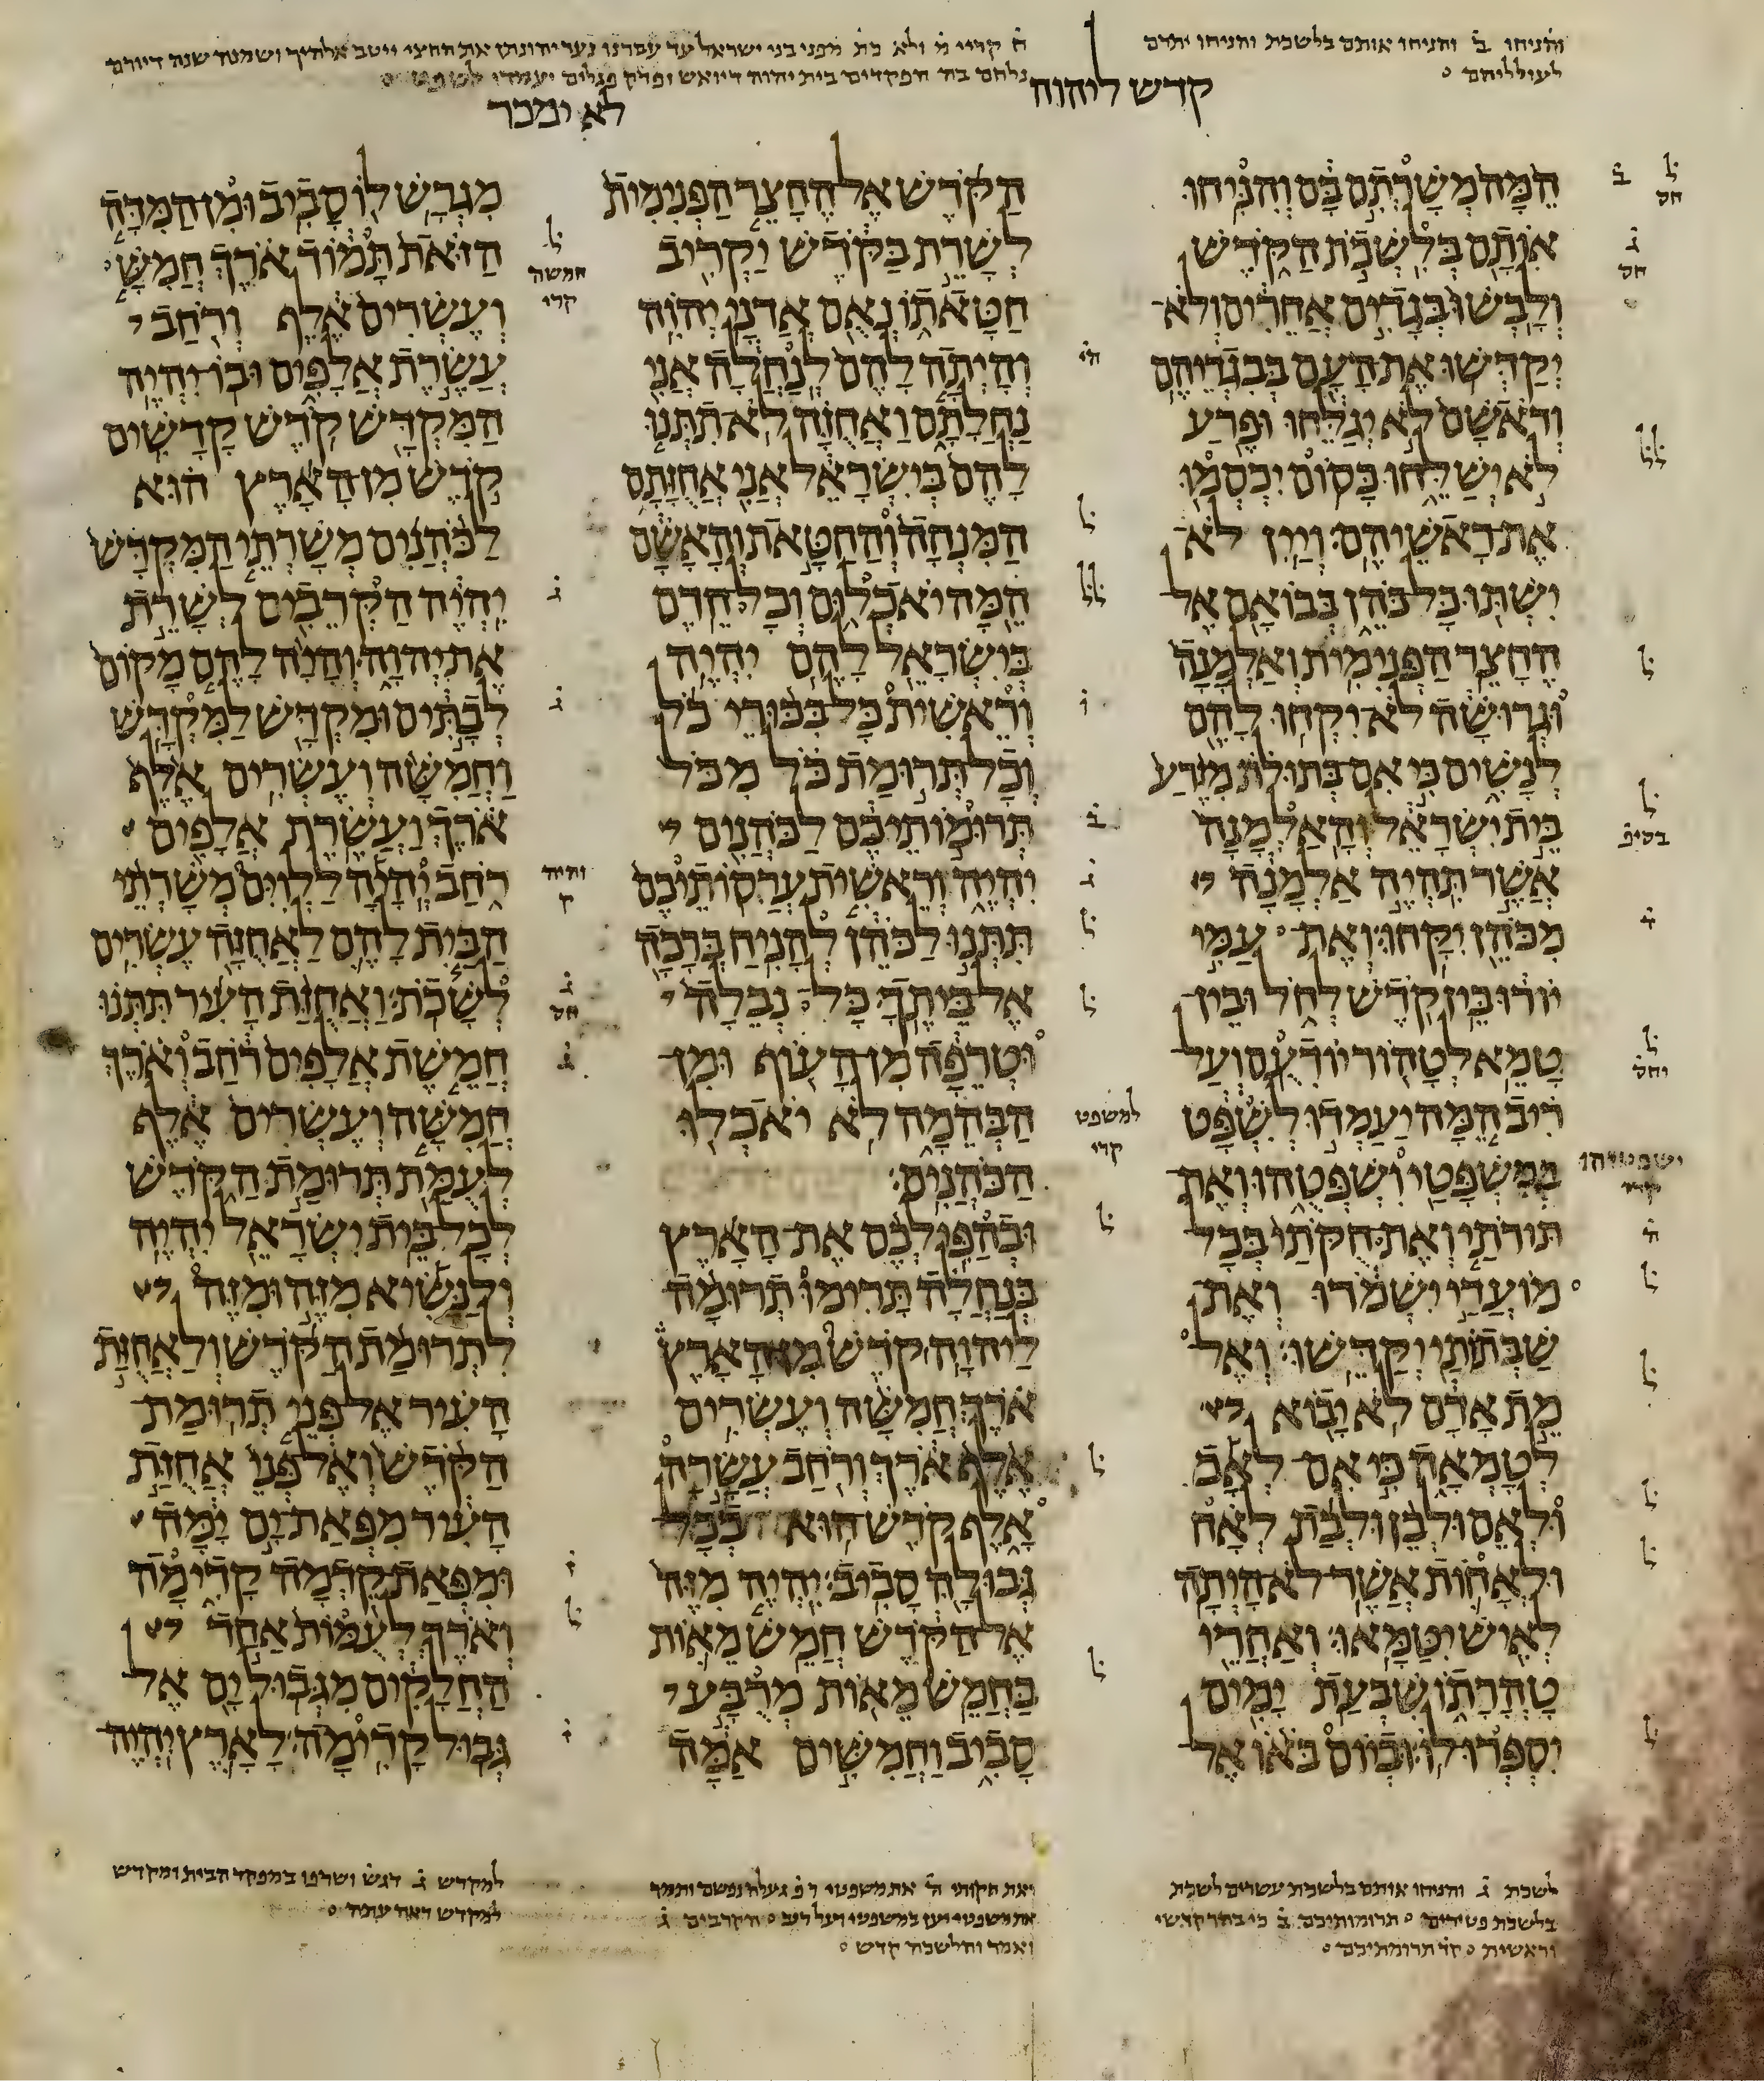 והניחו ב והניחו אותם בלשכת והניחו יתרם
לעולליהם
ה קריי מ ולא כת מפני בני ישראל עד עברנו נער יהונתן את החצי ייטב אלהיך ושמנה שנה דיורם
נלחם בה הפקדים בית יהוה דיואש ופרק פגלים יעמדו
קדש ליהוה
לא ימכר
המה משרתם בם והניחו
אותם בלשכת הקדש
ולבשו בגדים אחרים ולא
יקדשו את העם בבגדיהם
וראשם לא יגלחו ופרע
לא ישלחו כסום יכסמו
את ראשיהם ויין לא
ישתו כל כהן בבואם אל
החצר הפנימית ואלמנה
וגרושה לא יקחו להם
לנשים כי אם בתולת מזרע
בית ישראל והאלמנה
אשר תהיה אלמנה
מכהן יקחו ואת עמי
יורו בין קדש לחל ובין
טמא לטהור יודעם ועל
ריב המה יעמדו לשפט
במשפטי ושפטהו ואת
תורתי ואת חקתי בכל
מועדי ישמרו ואת
שבתותי יקדשו ואל
מת אדם לא יבוא
לטמאה כי אם לאב
ולאם ולבן ולבת לאח
ולאחות אשר לא היתה
לאיש יטמאו ואחרי
טהרתו שבעת ימים
יספרו לו וביום באו אל
הקדש אל החצר הפנימית
לשרת בקדש יקריב
חטאתו נאם אדני יהוה
והיתה להם לנחלה אני
נחלתם ואחזה לא תתנו
להם בישראל אני אחזתם
המנחה והחטאת והאשם
המה יאכלום וכל חרם
בישראל להם יהיה
וראשית כל בכורי כל
וכל תרומת כל מכל
תרומותיכם לכהנים
יהיה וראשית ערסותיכם
תתנו לכהן להניח ברכה
אל ביתך כל נבלה
וטרפה מן העוף ומן
הבהמה לא יאכלו
הכהנים
ובהפילכם את הארץ
בנחלה תרימו תרומה
ליהוה קדש מן הארץ
ארך חמשה ועשרים
אלף ארך ורחב עשרה
אלף קדש הוא בכל
גבולה סביב יהיה מזה
אל הקדש חמש מאות
בחמש מאות מרבע
סביב וחמשים אמה
מגרש לו סביב ומן המדה
הזאת תמוד ארך חמש
ועשרים אלף ורחב
עשרת אלפים ובו יהיה
המקדש קדש קדשים
קדש מן הארץ הוא
לכהנים משרתי המקדש
יהיה הקרבים לשרת
את יהוה והיה להם מקום
לבתים ומקדש למקדש
וחמשה ועשרים אלף
ארך ועשרת אלפים
רחב יהיה ללוים משרתי
הבית להם לאחזה עשרים
לשכת ואחזת העיר תתנו
חמשת אלפים רחב וארך
חמשה ועשרים אלף
לעמת תרומת הקדש
לכל בית ישראל יהיה
ולנשיא מזה ומזה
לתרומת הקדש ולאחזת
העיר אל פני תרומת
הקדש ואל פני אחזת
העיר מפאת ים ימה
ומפאת קדמה קדימה
וארך לעמות אחד
החלקים מגבול ים אל
גבול קדימה לארץ יהיה
חמשה
קרי
והיה
ק
למשפט
קרי
לשכת ג והניחו אותם בלשכת עשרים לשכת
וראשית
ואת חקותי
ואמר וזה לשכה קדש
למקדש ג דגש ושרפו במפקד הבית ומקדש
למקדש ראה עתה